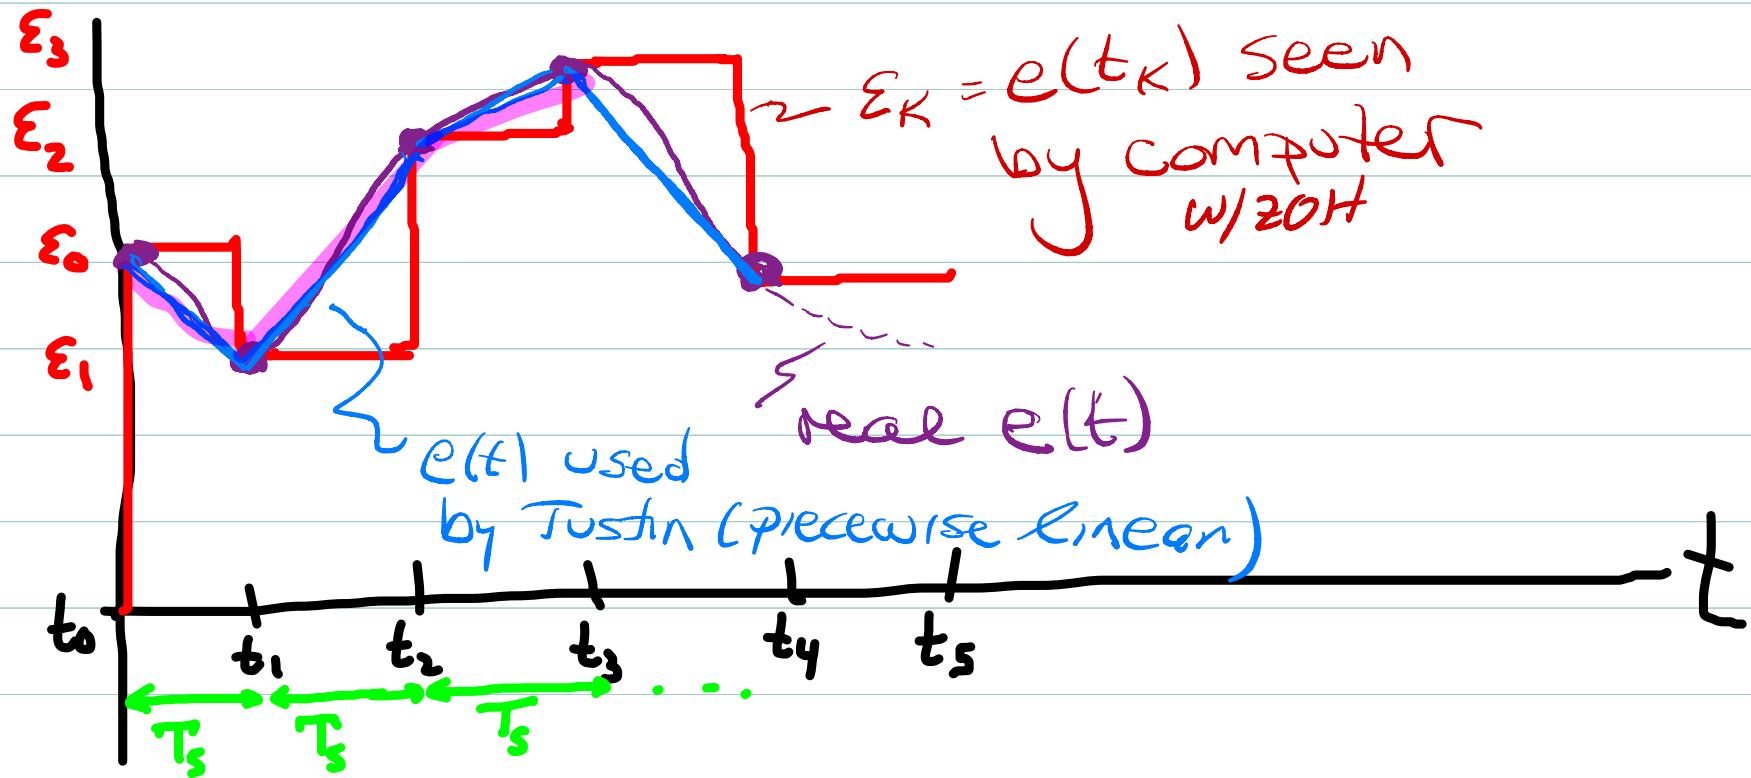 ε3
ε2
ε0
ε1
~ εK = e(tK) seen
by computer
w/ZOH
real e(t)
e(t) used
by Tustin (piecewise linear)
t
t0
t1
t2
t3
t4
t5
Ts
Ts
Ts
. . .